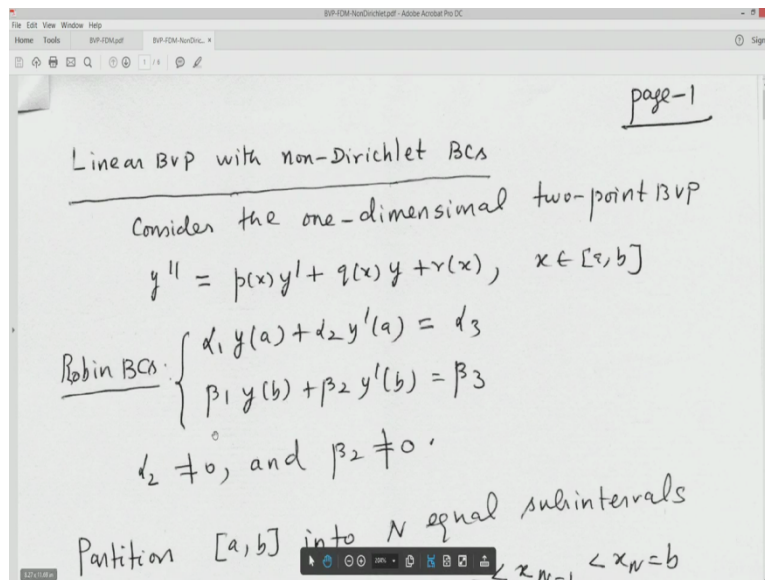 BVP-FDM-NonDirichlet.pdf - Adobe Acrobat Pro DC
File Edit View Window Help
Home Tools BVP-FDM.pdf BVP-FDM-NonDiric... × Sign
1 / 6
page-1
Linear BVP with non-Dirichlet BCs
Consider the one-dimensimal two-point BVP
y'' = p(x)y' + q(x)y + r(x), x ∈ [a, b]
Robin BCs: { α₁ y(a) + α₂ y'(a) = α₃
β₁ y(b) + β₂ y'(b) = β₃
α₂ ≠ 0, and β₂ ≠ 0.
Partition [a, b] into N equal subintervals
< x_{N-1} < x_N = b